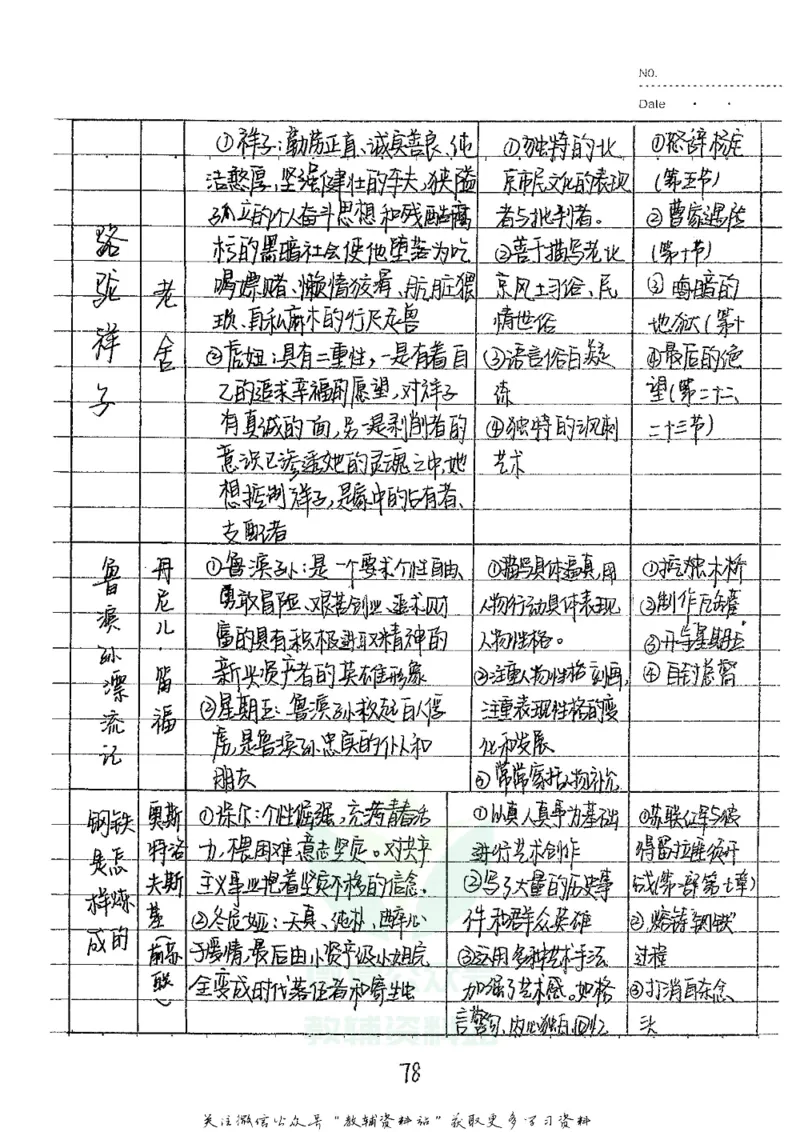 NO.
Date
骆驼祥子
老舍
①祥子:勤劳正直、诚实善良、纯
洁憨厚,坚强健壮的车夫,狭隘
孤立的个人奋斗思想和残酷腐
朽的黑暗社会使他堕落为吃
喝嫖赌、懒惰狡猾、肮脏猥
琐、自私麻木的行尸走兽
②虎妞:具有二重性,一是有着自
己的追求幸福的愿望,对祥子
有真诚的一面,另一是剥削者的
意识已渗透她的灵魂之中,她
想控制祥子,是家中的占有者、
支配者
①独特的北
京市民文化的表现
者与批判者。
②善于描写老北
京风土习俗、民
情世俗
③语言俗白凝
炼
④独特的讽刺
艺术
①怒辞杨宅
(第五节)
②曹家遇险
(第十节)
③晦暗的
地狱(第十
④最后的绝
望(第二十二、
二十三节)
鲁滨孙漂流记
丹尼儿·笛福
①鲁滨孙:是一个要求个性自由、
勇敢冒险、艰苦创业、追求财
富的具有积极进取精神的
新兴资产者的英雄形象
②星期五:鲁滨孙救起的
虏,是鲁滨孙忠实的仆人和
朋友
①描写具体逼真,用
人物行动具体表现
人物性格。
②注重人物性格刻画,
注重表现性格的变
化和发展
③常常穿插人物补充
①挖独木桥
②制作瓦
③开导星期五
④自制
钢铁是怎样炼成的
奥斯特洛夫斯基(前苏联)
①保尔:个性倔强,充满青春活
力,不畏困难,意志坚定。对共产
主义事业抱着坚定不移的信念。
②冬妮娅:天真、纯朴、醉心
于爱情,最后由小资产级小姐完
全变成时代落伍者和寄生虫
①以真人真事为基础
进行艺术创作
②写了大量的历史事
件和群众英雄
③运用多种艺术手法
加强了艺术感。如格
言警句、内心独白、回忆
①苏联红军与彼
得留拉匪徒开
战(第一部第七章)
②熔铸钢铁
过程
③打消自杀念
头
78
关注微信公众号"教辅资料站"获取更多学习资料
教辅资料站